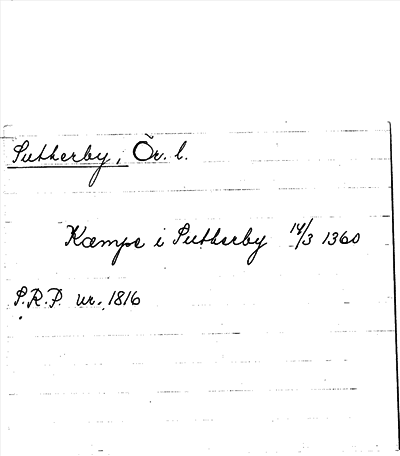 Putherby, Ör. l.
Kæmpe i Putherby 14/3 1360
P.R.P. nr. 1816